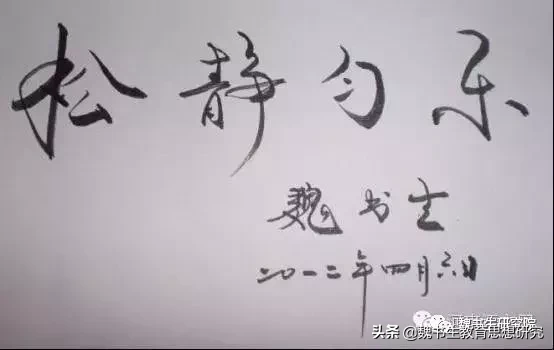 松静匀乐
魏书生
二〇一二年四月六日
魏书生研究院
头条@魏书生教育思想研究